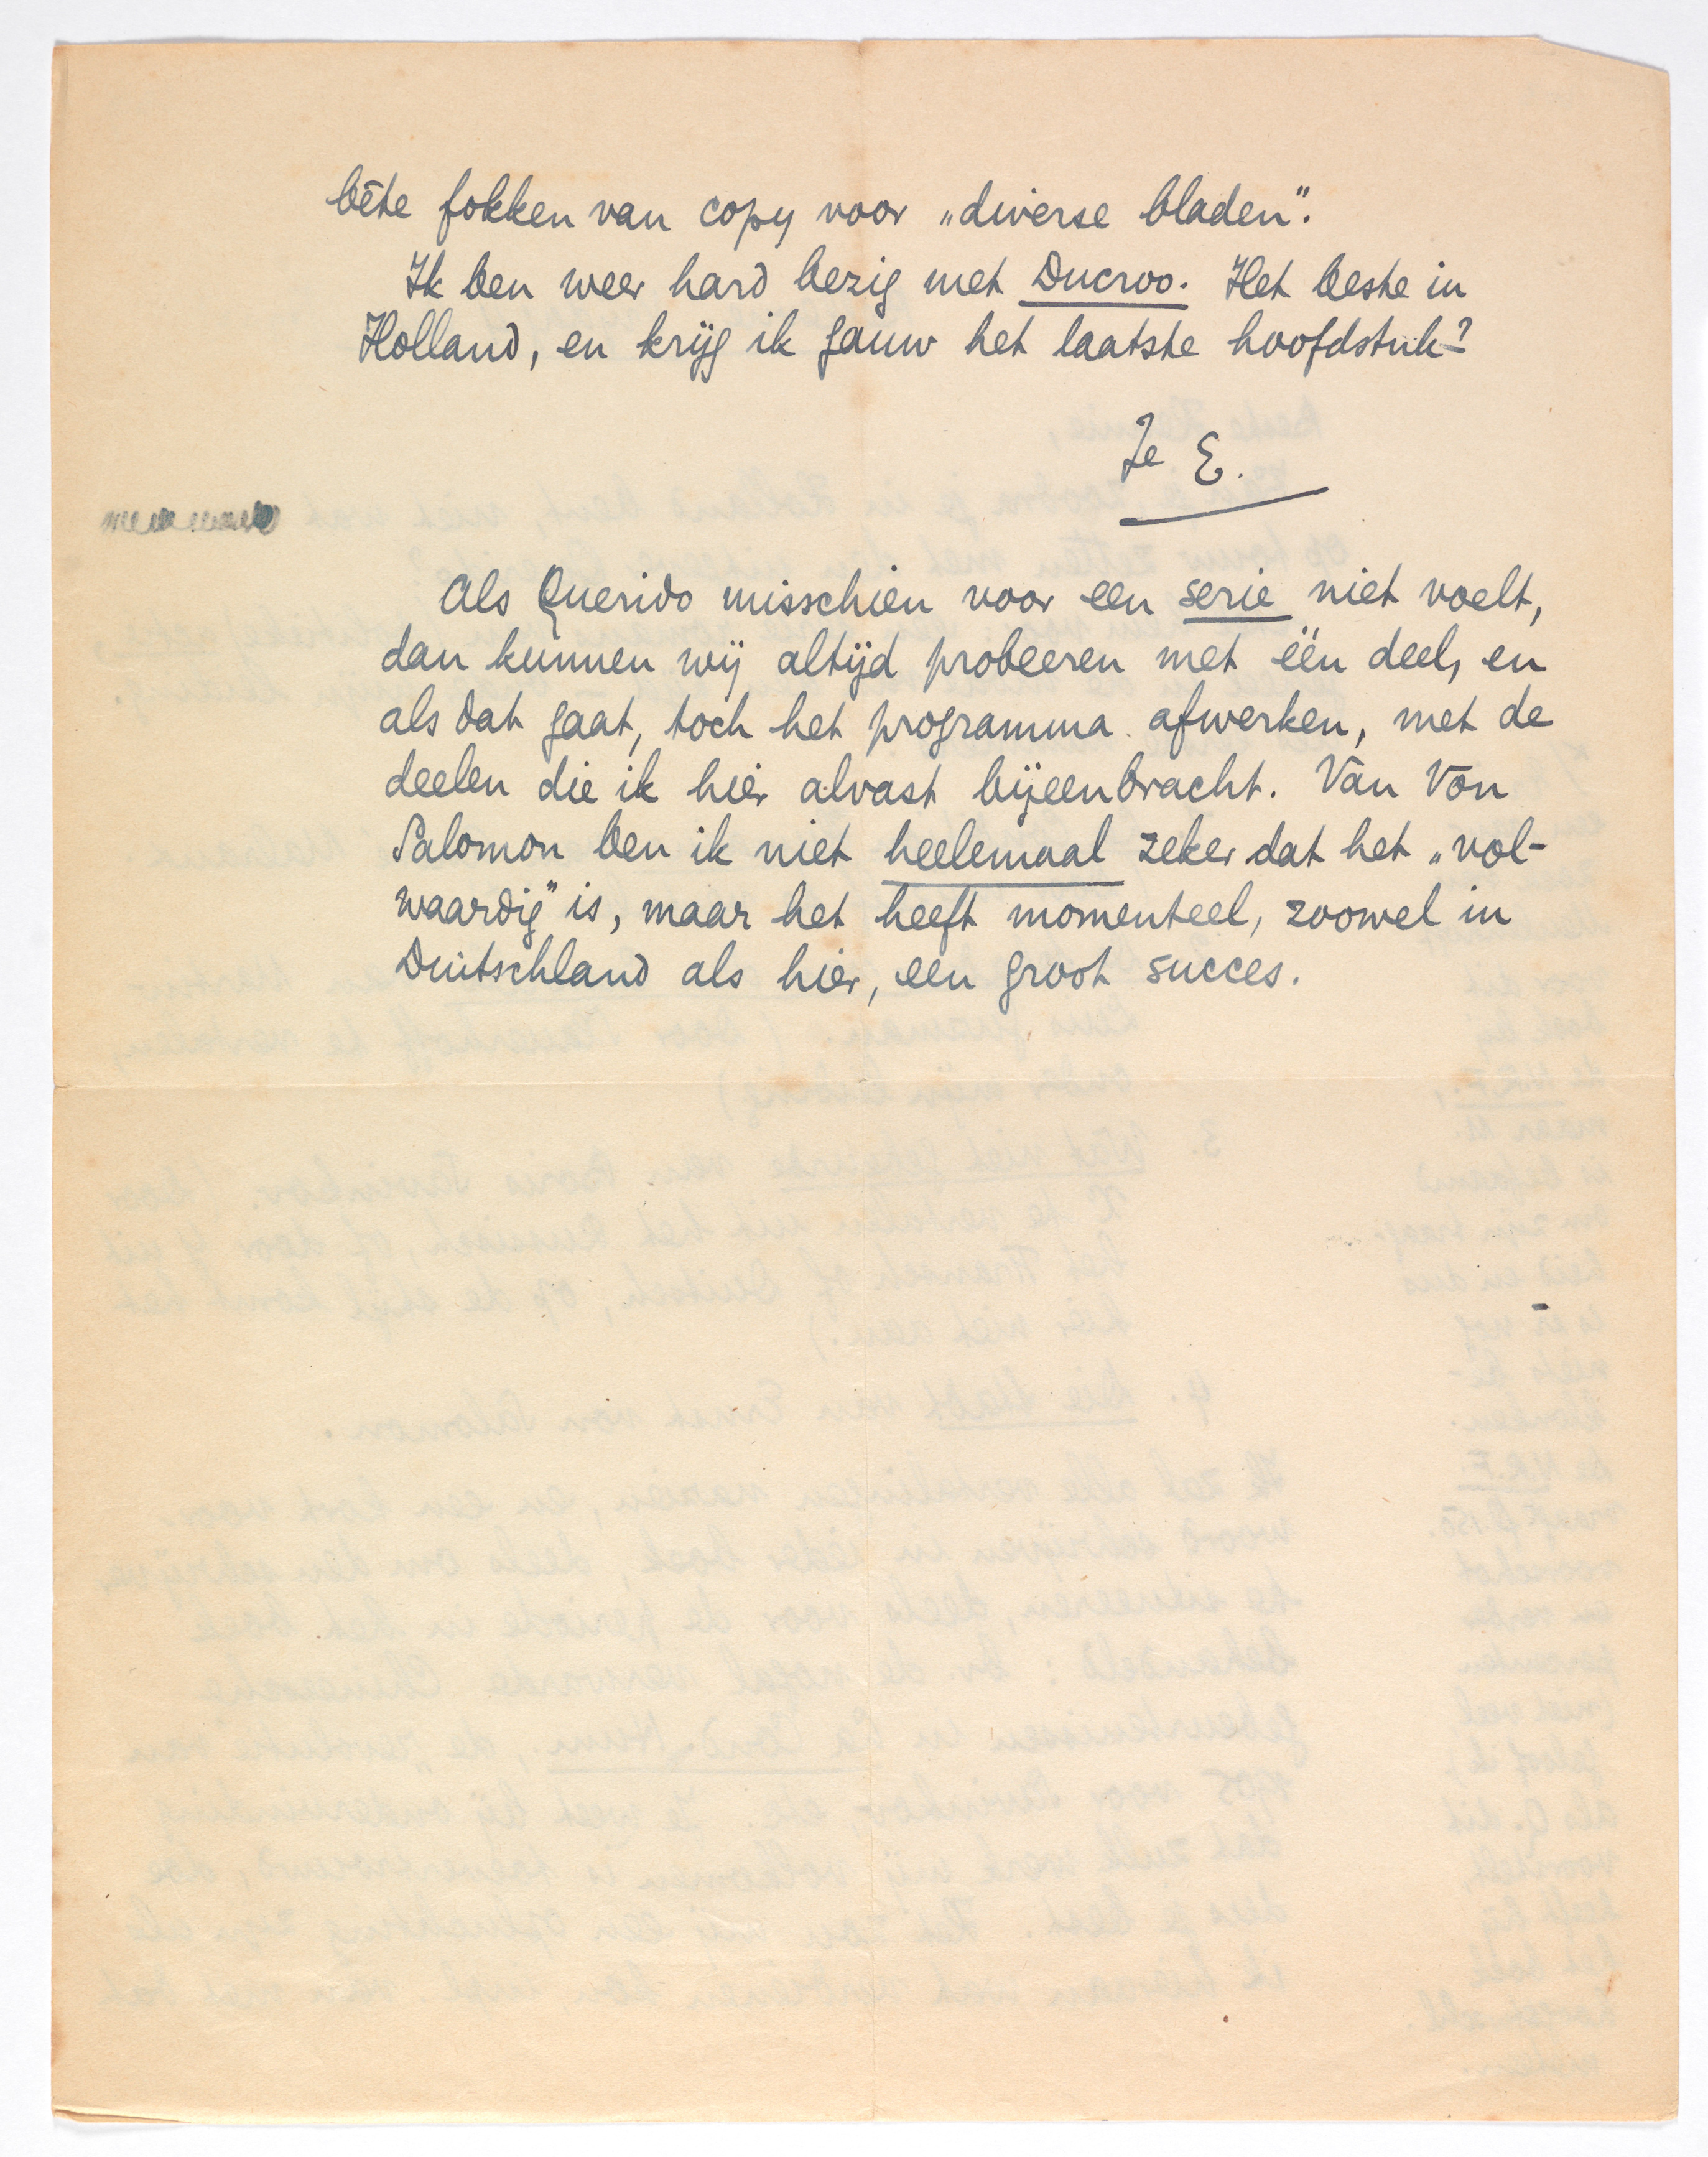 bête fokken van copy voor „diverse bladen".
Ik ben weer hard bezig met Ducroo. Het beste in
Holland, en krijg ik gauw het laatste hoofdstuk?
Je E.
Als Querido misschien voor een serie niet voelt,
dan kunnen wij altijd probeeren met één deel, en
als dat gaat, toch het programma afwerken, met de
deelen die ik hier alvast bijeenbracht. Van Von
Salomon ben ik niet heelemaal zeker dat het „vol-
waardig" is, maar het heeft momenteel, zoowel in
Duitschland als hier, een groot succes.